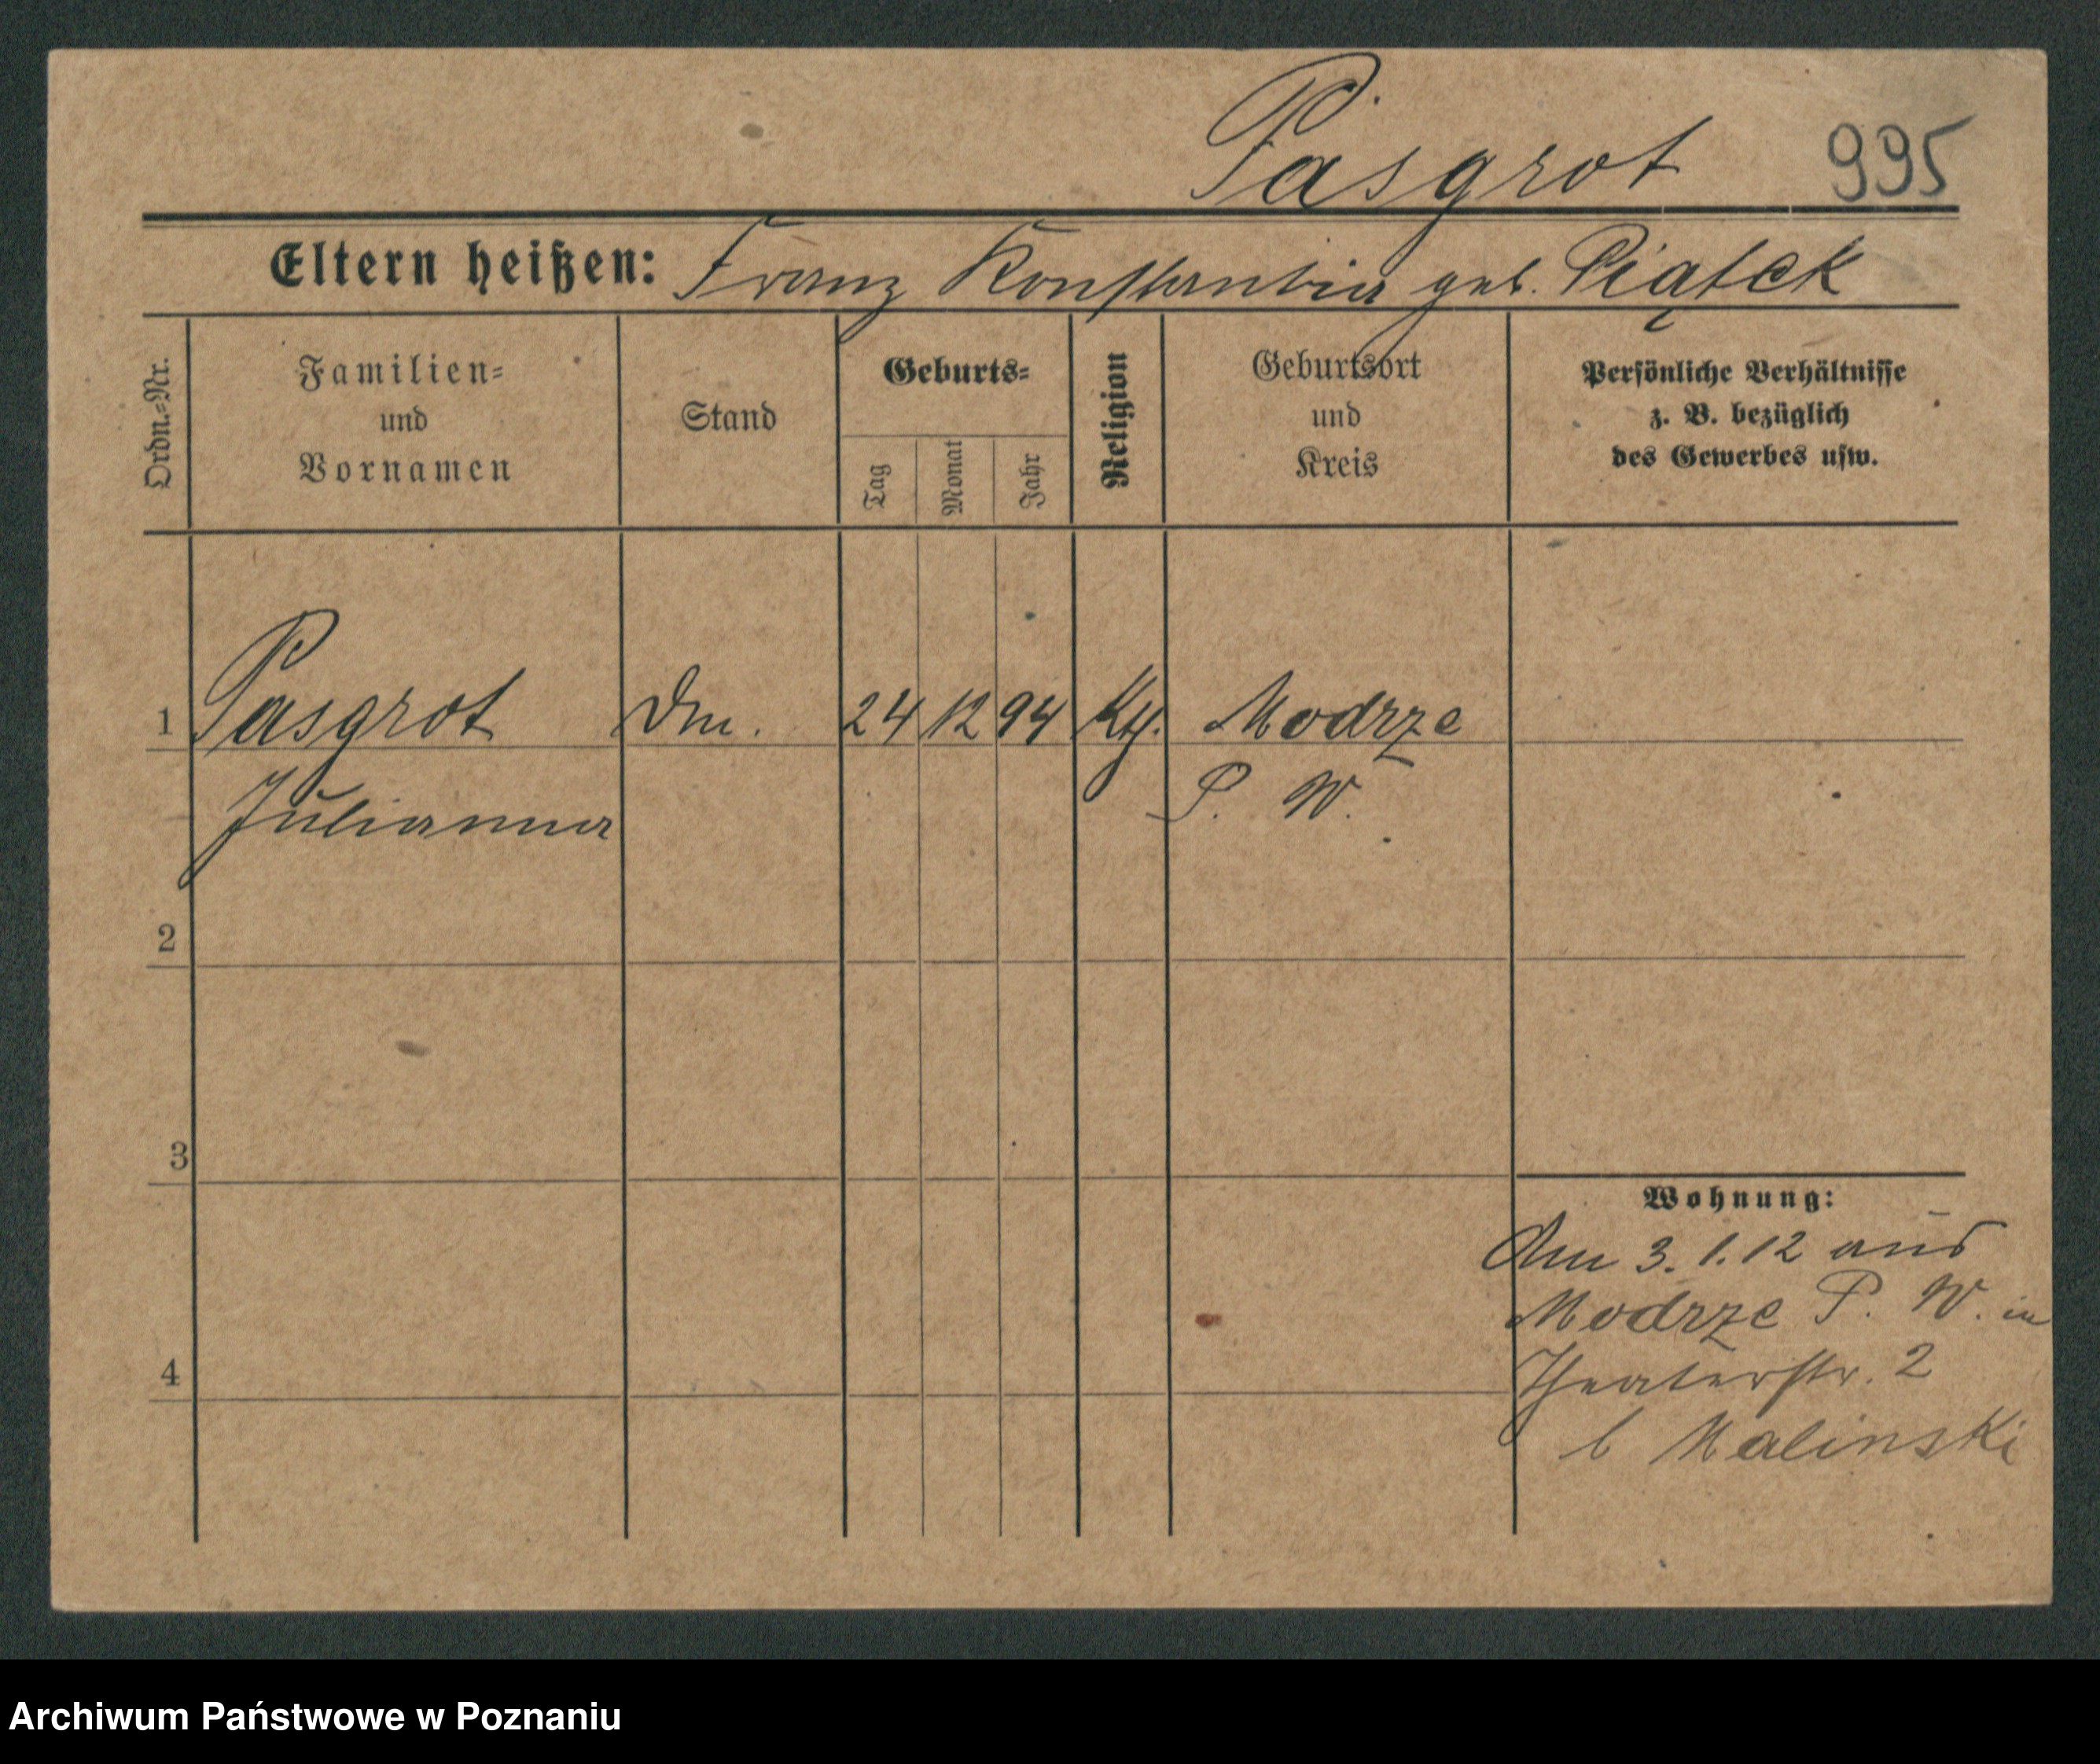 Pasgrot 995
Eltern heißen: Franz Konstantia geb. Piątek
Ordn.-Nr.
Familien-
und
Vornamen
Stand
Geburts-
Tag
Monat
Jahr
Religion
Geburtsort
und
Kreis
Persönliche Verhältnisse
z. B. bezüglich
des Gewerbes usw.
1 Pasgrot Dm. 24 12 94 Kth. Modrze
Julianna P. W.
2
3
Wohnung:
Am 3. 1. 12 aus
Modrze P. W. in
4 Theaterstr. 2
b Malinski
Archiwum Państwowe w Poznaniu